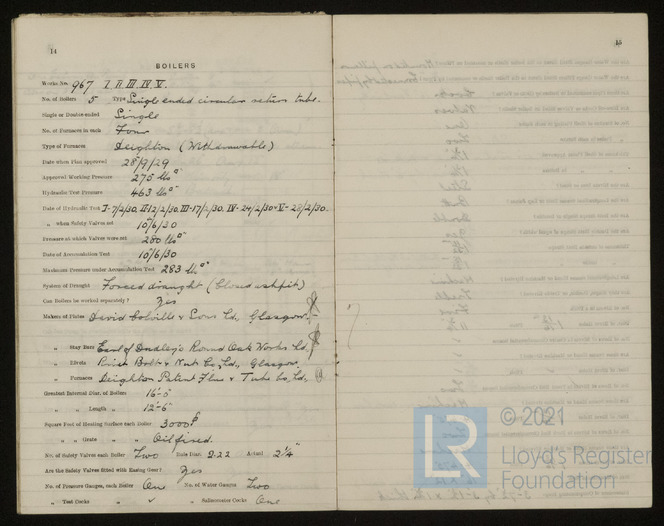 14
BOILERS
Works No. 967 I. II. III. IV. V.
No. of Boilers 5 Type Single ended circular return tube.
Single or Double-ended Single
No. of Furnaces in each Four
Type of Furnaces Deighton (Withdrawable)
Date when Plan approved 28/9/29
Approved Working Pressure 275 lbs
Hydraulic Test Pressure 463 lbs
Date of Hydraulic Test I-7/2/30. II-12/2/30. III-17/2/30. IV-24/2/30 V-28/2/30.
„ when Safety Valves set 10/6/30
Pressure at which Valves were set 280 lbs
Date of Accumulation Test 10/6/30
Maximum Pressure under Accumulation Test 283 lbs
System of Draught Forced draught (Closed ashpit)
Can Boilers be worked separately? Yes
Makers of Plates David Colville & Sons Ld, Glasgow.
„ Stay Bars Earl of Dudley's Round Oak Works Ld.
„ Rivets Bolt & Nut Co, Ld, Glasgow
„ Furnaces Deighton Patent Flue & Tube Co, Ld,
Greatest Internal Diam. of Boilers 16'-0"
„ „ Length „ 12'-6"
Square Feet of Heating Surface each Boiler 3000
„ „ Grate „ „ Oil fired.
No. of Safety Valves each Boiler Two Rule Diam. 2.22 Actual 2¼"
Are the Safety Valves fitted with Easing Gear? Yes
No. of Pressure Gauges, each Boiler One No. of Water Gauges Two
„ Test Cocks „ ✓ „ Salinometer Cocks One
15
© 2021
LR
Lloyd's Register
Foundation